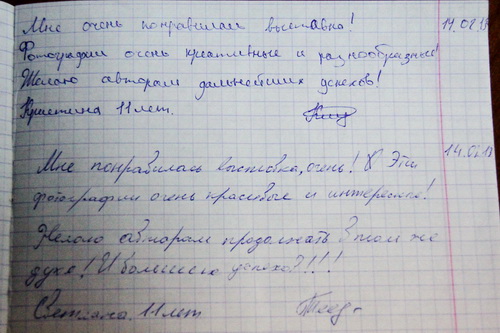 Мне очень понравилась выставка! 14.02.18
Фотографии очень креативные и разнообразные!
Желаю авторам дальнейших успехов!
Кристина 11 лет.
Мне понравилась выставка, очень! Эти 14.02.18
фотографии очень красивые и интересные!
Желаю авторам продолжать в том же
духе! И большего успеха!!!
Светлана. 11 лет